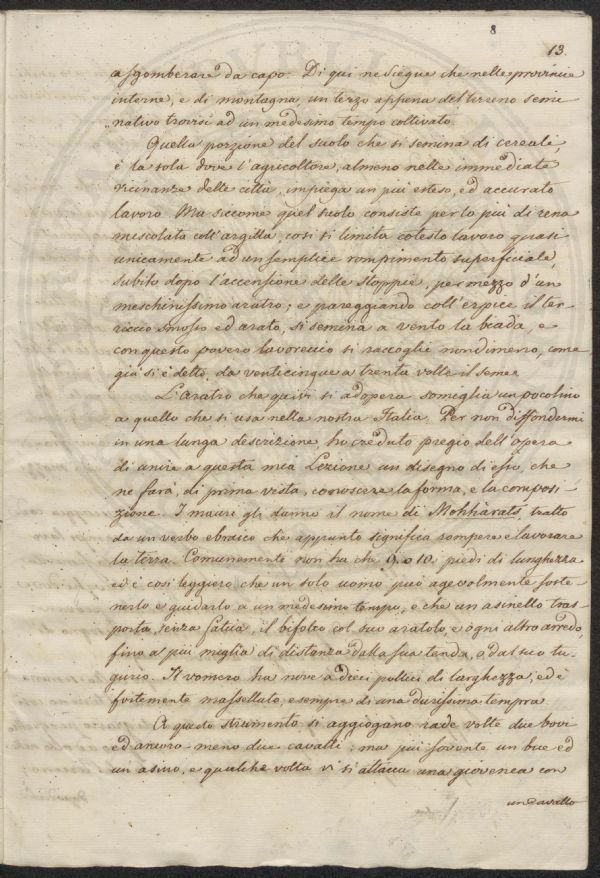 8
13
a sgomberare da capo. Di qui ne siegue che nelle provincie
interne, e di montagna, un terzo appena del terreno semi
nativo trovisi ad un medesimo tempo coltivato.
Quella porzione del suolo che si semina di cereali,
è la sola dove l'agricoltore, almeno nelle immediate
vicinanze delle città, impiega un più esteso, ed accurato
lavoro. Ma siccome quel suolo consiste per lo più di rena
mescolata coll'argilla, così si limita cotesto lavoro quasi
unicamente ad un semplice rompimento superficiale,
subito dopo l'accensione delle stoppie, per mezzo d'un
meschinissimo aratro; e pareggiando coll'erpice il ter-
riccio smosso ed arato, si semina a vento la biada, e
con questo povero lavoreccio si raccoglie nondimeno, come
già si è detto, da venticinque a trenta volte il seme.
L'aratro che quivi si adopera somiglia un pocolino
a quello che si usa nella nostra Italia. Per non diffondermi
in una lunga descrizione, ho creduto pregio dell'opera
di unire a questa mia Lezione un disegno di esso, che
ne farà, di prima vista, conoscere la forma, e la composi-
zione. I mauri gli danno il nome di Mohharats, tratto
da un verbo ebraico che appunto significa rompere e lavorare
la terra. Comunemente non ha che 9, o 10. piedi di lunghezza
ed è così leggiero che un solo uomo può agevolmente soste-
nerlo e guidarlo a un medesimo tempo, e che un asinello tras-
porta, senza fatica, il bifolco col suo aratolo, e ogni altro arredo,
fino a più miglia di distanza dalla sua tenda, o dal suo tu-
gurio. Il vomero ha nove a dieci pollici di larghezza, ed è
fortemente massellato, e sempre di una durissima tempra.
A questo strumento si aggiogano rade volte due bovi
ed ancora meno due cavalli; ma più sovente un bue ed
un asino, e qualche volta vi si attacca una giovenca con
un cavallo